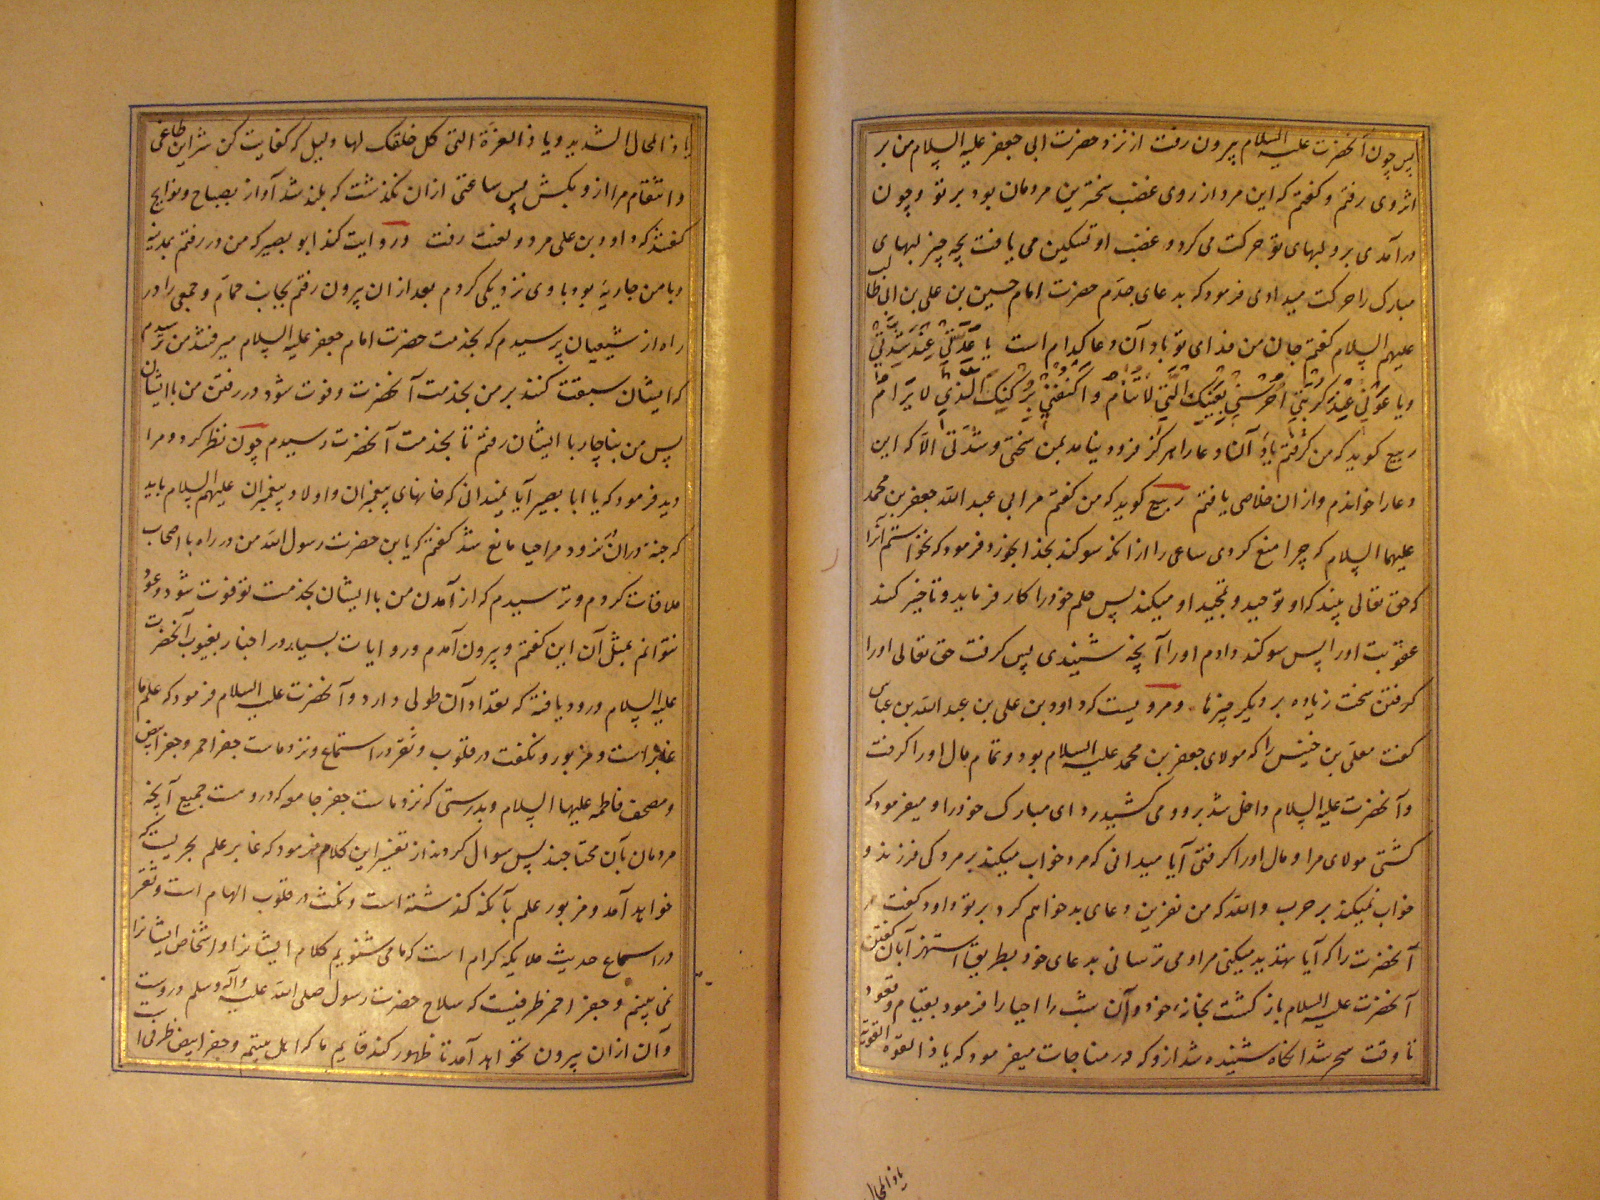 پس چون آنحضرت علیه السلام بیرون رفت از نزد حضرت ابی جعفر علیه السلام من بر
اثر وی رفتم و گفتم که این مرد از روی غضب سخت‌ترین مردمان بود بر تو و چون
در آمدی برو لبهای تو حرکت می کرد و غضب او تسکین می یافت بچه چیز لبهای
مبارک را حرکت میدادی فرمود که بدعای جدّم حضرت امام حسین بن علی بن ابی طالب
علیهم السلام گفتم جان من فدای تو باد آن دعا کدام است یا عُدَّتی عِندَ شِدَّتی
ویا غَوْثی عِنْدَ کُرْبَتی اُحْرُسْنی بِعَیْنِکَ الَّتی لا تَنامُ وَ اکْنُفْنی بِرُکْنِکَ الَّذی لا یُرامُ
ربیع گوید که من گرفتم یاد آن دعا را هرگز فرود نیامد بمن سختی و شدّتی الّا که این
دعا را خواندم و از ان خلاصی یافتم ربیع گوید که من گفتم مر ابی عبد الله جعفر بن محمد
علیهما السلام که چرا منع کردی ساعی را از انکه سوگند بخدا بخورد فرمود که نخواستم آنرا
که حق تعالی بیند که او توحید و تمجید او میکند پس حلم خود را کار فرماید و تاخیر کند
عقوبت او را پس سوگند دادم او را آنچه شنیدی پس گرفت حق تعالی او را
گرفتن سخت زیاده بر دیگر چیزها و مرویست که داود بن علی بن عبد الله بن عباس
کشت معلی بن خنیس را که مولای جعفر بن محمد علیه السلام بود و تمام مال او را گرفت
و آنحضرت علیه السلام داخل شد برو و می کشید ردای مبارک خود را و میفرمود که
کشتی مولای مرا و مال او را گرفتی آیا میدانی که مرد خواب میکند بر مردگی فرزند و
خواب نمیکند بر حرب والله که من نفرین و دعای بد خواهم کرد بر تو داود گفت مر
آنحضرت را که آیا تهدید میکنی مرا و می ترسانی بدعای خود بطریق استهزا بآن گفتن
آنحضرت علیه السلام باز گشت بخانه خود و آن شب را احیا را فرمود بقیام و قعود
تا وقت سحر شد انگاه شنیده شد ازو که در مناجات میفرمود که یا ذا القوه القویّة
یا ذالمحال
یا ذالمحال الشدید و یا ذا العزّة التی کل خلقک لها ذلیل که کفایت کن شر این طاغی
و انتقام مرا ازو بکش پس ساعتی از ان نگذشت که بلند شد آواز بصیاح و نوایح
گفتند که داود بن علی مرد و لعنت رفت و روایت کند ابو بصیر که من در رفتم بمدینه
و با من جاریهٔ بود با وی نزدیکی کردم بعد از ان بیرون رفتم بجانب حمام و جمعی را در
راه از شیعیان پرسیدم که بخدمت حضرت امام جعفر علیه السلام میرفتند من ترسیدم
که ایشان سبقت کنند بر من بخدمت آنحضرت و فوت شود در رفتن من با ایشان
پس من بناچار با ایشان رفتم تا بخدمت آنحضرت رسیدم چون نظر کرد و مرا
دید فرمود که یا ابا بصیر آیا نمیدانی که خانهای پیغمبران و اولاد پیغمبران علیهم السلام باید
که جنب در ان نرود مرا حیا مانع شد گفتم که یا بن حضرت رسول الله من در راه با اصحاب
ملاقات کردم و ترسیدم که از آمدن من با ایشان بخدمت تو فوت شود و عود
نتوانم بمثل آن این گفتم و بیرون آمدم و روایات بسیار در اخبار بغیوب آنحضرت
علیه السلام ورود یافته که تعداد آن طولی دارد و آنحضرت علیه السلام فرمود که علم ما
غابر است و مزبور و نکفت در قلوب و نقر در استماع و نزد ماست جفر احمر و جفر ابیض
و مصحف فاطمه علیها السلام و بدرستی که نزد ماست جفر جامعه که دروست جمیع آنچه
مردمان بآن محتاجند پس سوال کردند از تفسیر این کلام فرمود که غابر علم بچیزیست که
خواهد آمد و مزبور علم بآنکه گذشته است و نکث در قلوب الهام است و نقر
در اسماع حدیث ملایکه کرام است که ما می شنویم کلام ایشانرا و اشخاص ایشانرا
نمی بینم و جفر احمر ظرفیست که سلاح حضرت رسول صلی الله علیه وآله وسلم دروست
و آن از ان بیرون نخواهد آمد تا ظهور کند قایم ما که اهل بیتیم و جفر ابیض ظرفی است